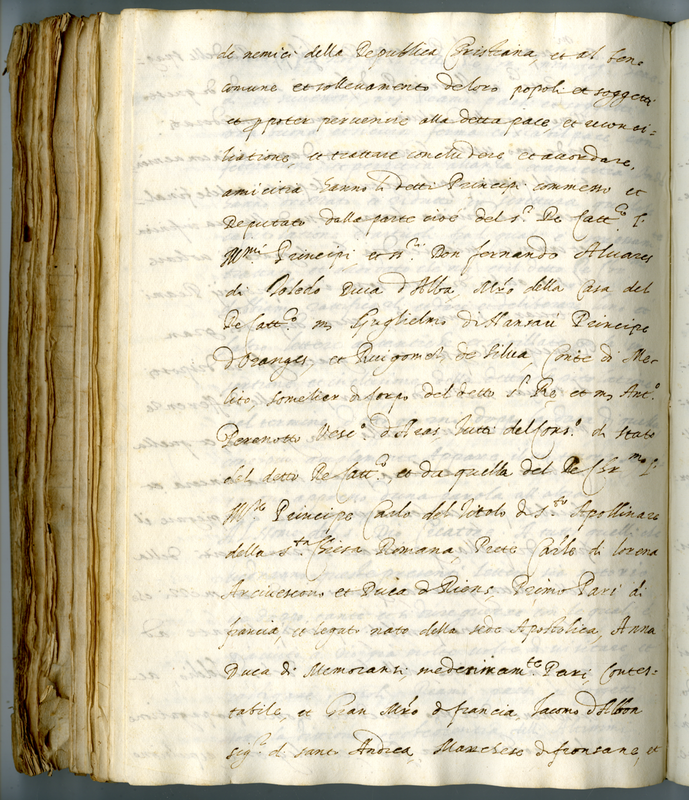 di nemici della Republica Cristiana, et al ben
comune et sollevamento de loro popoli et soggetti
et p poter pervenire alla detta pace et reconci-
liatione, et trattare concludere et accordare,
amicitia hanno li detti Principi commesso et
Deputato dalla parte cioe del s.r Re Catt.co
Principi et ss.ri Don fernando Alvares
di Toledo Duca d'Alba, M.ro della Casa del
Re Catt.co m. Guglielmo di Nansau Principe
d'Oranges, et Ruigomes de Silva, Conte di Me-
lito, somelier di Corpo del detto s.r Re et m. Ant.o
Perenotto Vesc.o d'Aras Tutti del Cons.o di stato
del detto Re Catt.co, et da quella del Re Chr.mo
Principe Carlo del titolo di s.to Apollinare
della s.ta Chiesa Romana, Prete Car.le di lorena
Arcivescovo et Duca di Riens Primo Pari di
francia, et legato nato della sede Apostolica, Anna
Duca di Memoransi medesimam.te Pari, Contes-
tabile, et Gran M.ro di francia, Iacomo d'Albon
sig.r di sant Andrea, Marchese di fronsane, et